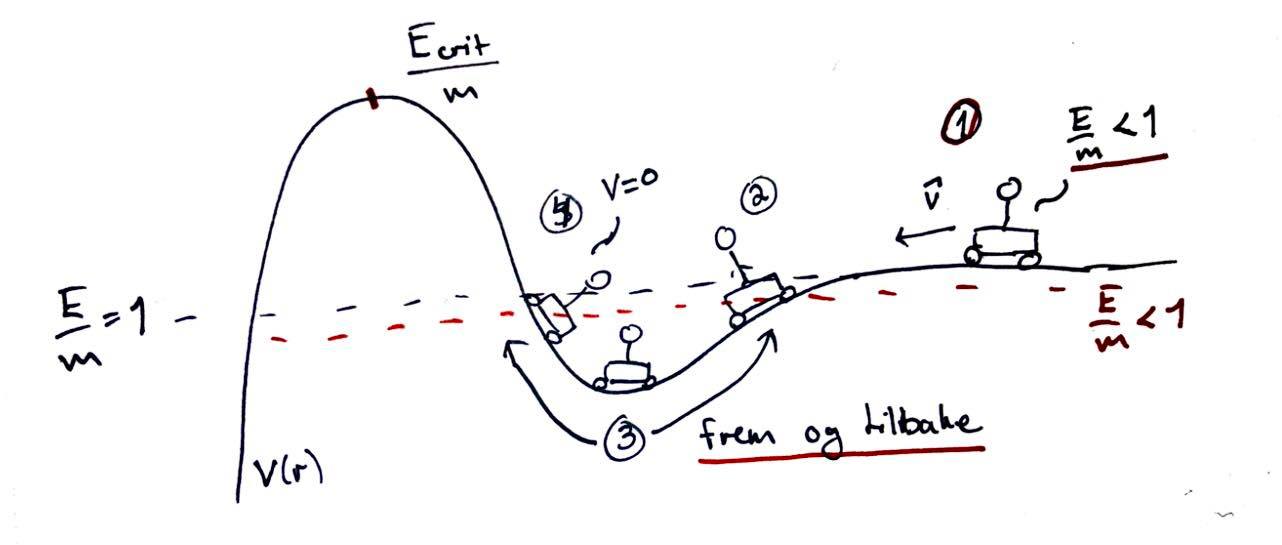 E crit
m
①
E/m < 1
④ V=0
②
v⃗
E/m = 1
E/m < 1
③
frem og tilbake
V(r)